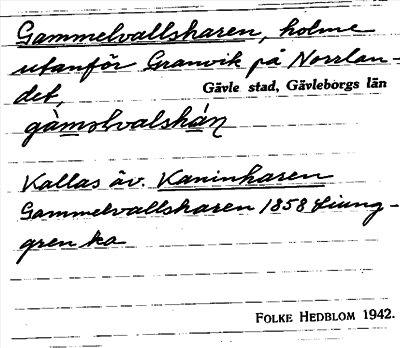 Gammelvallsharen, holme
utanför Granvik på Norrlan-
det,
Gävle stad, Gävleborgs län
gàməlvalshán
Kallas äv. Kaninharen
Gammelvallsharen 1858 Ljung-
gren ka
FOLKE HEDBLOM 1942.